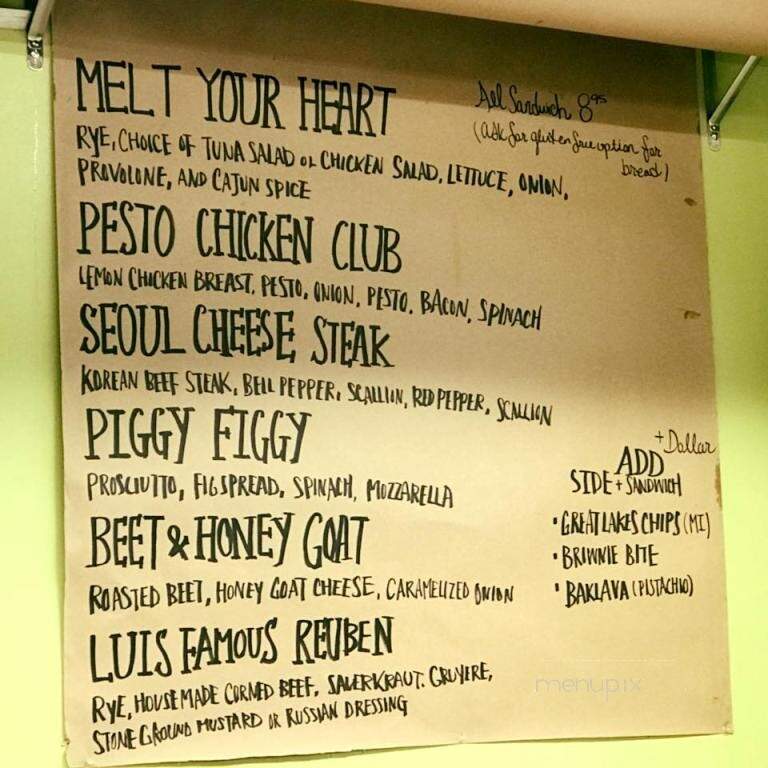 MELT YOUR HEART
All Sandwich 8⁹⁵
(ask for gluten free option for
bread)
RYE, CHOICE OF TUNA SALAD OR CHICKEN SALAD, LETTUCE, ONION,
PROVOLONE, AND CAJUN SPICE
PESTO CHICKEN CLUB
LEMON CHICKEN BREAST, PESTO, ONION, PESTO, BACON, SPINACH
SEOUL CHEESE STEAK
KOREAN BEEF STEAK, BELL PEPPER, SCALLION, RED PEPPER, SCALLION
PIGGY FIGGY
PROSCIUTTO, FIG SPREAD, SPINACH, MOZZARELLA
BEET & HONEY GOAT
ROASTED BEET, HONEY GOAT CHEESE, CARAMELIZED ONION
LUIS FAMOUS REUBEN
RYE, HOUSEMADE CORNED BEEF, SAUERKRAUT, GRUYERE,
STONE GROUND MUSTARD OR RUSSIAN DRESSING
+ Dollar
ADD
SIDE + SANDWICH
• GREAT LAKES CHIPS (MI)
• BROWNIE BITE
• BAKLAVA (PISTACHIO)
menupix